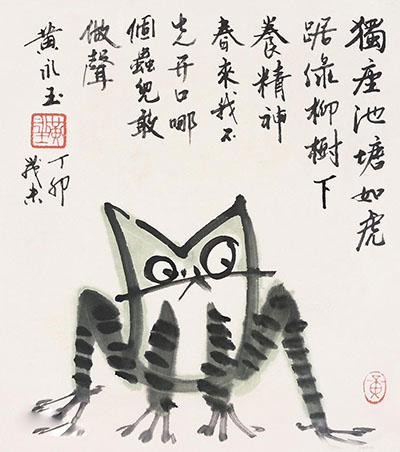 獨座池塘如虎
踞綠柳樹下
養精神
春來我不
先开口哪
個蟲兒敢
做聲
黃永玉
丁卯
歲末
黃